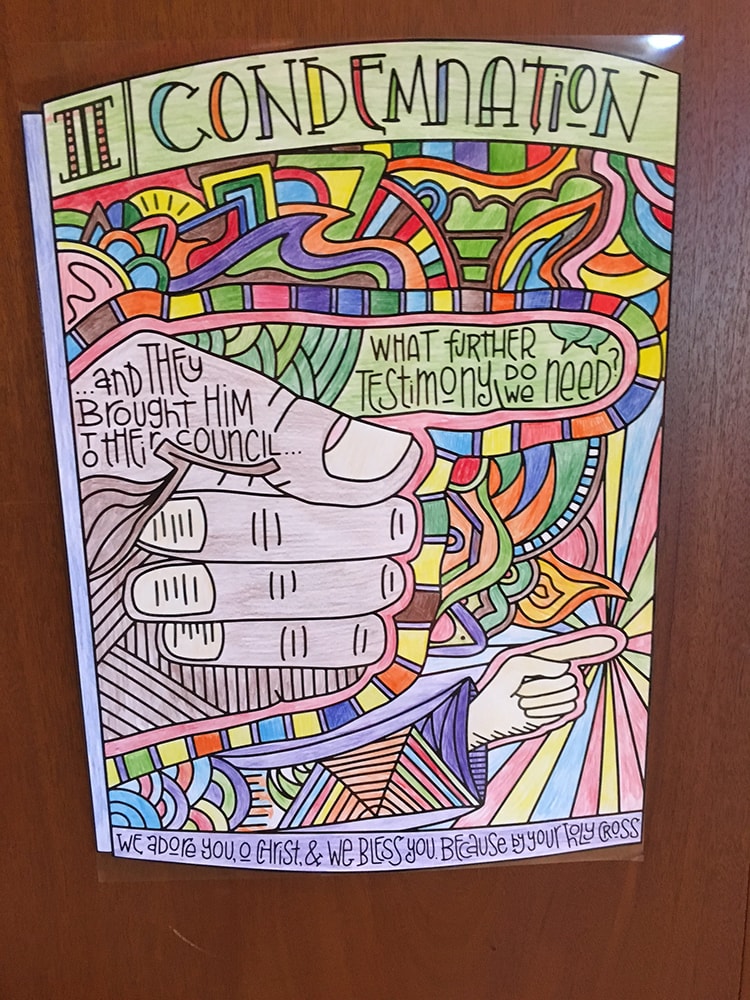 III CONDEMNATiON
...and THEy
BrougHT HiM
To tHEir COUNCiL...
WHAT fURTHER
TEStiMONy DO
WE NEED?
WE adORE YOU, O CHRiSt, & WE BLESS yOU. BECaUSE by yOUr HOLy CROSS